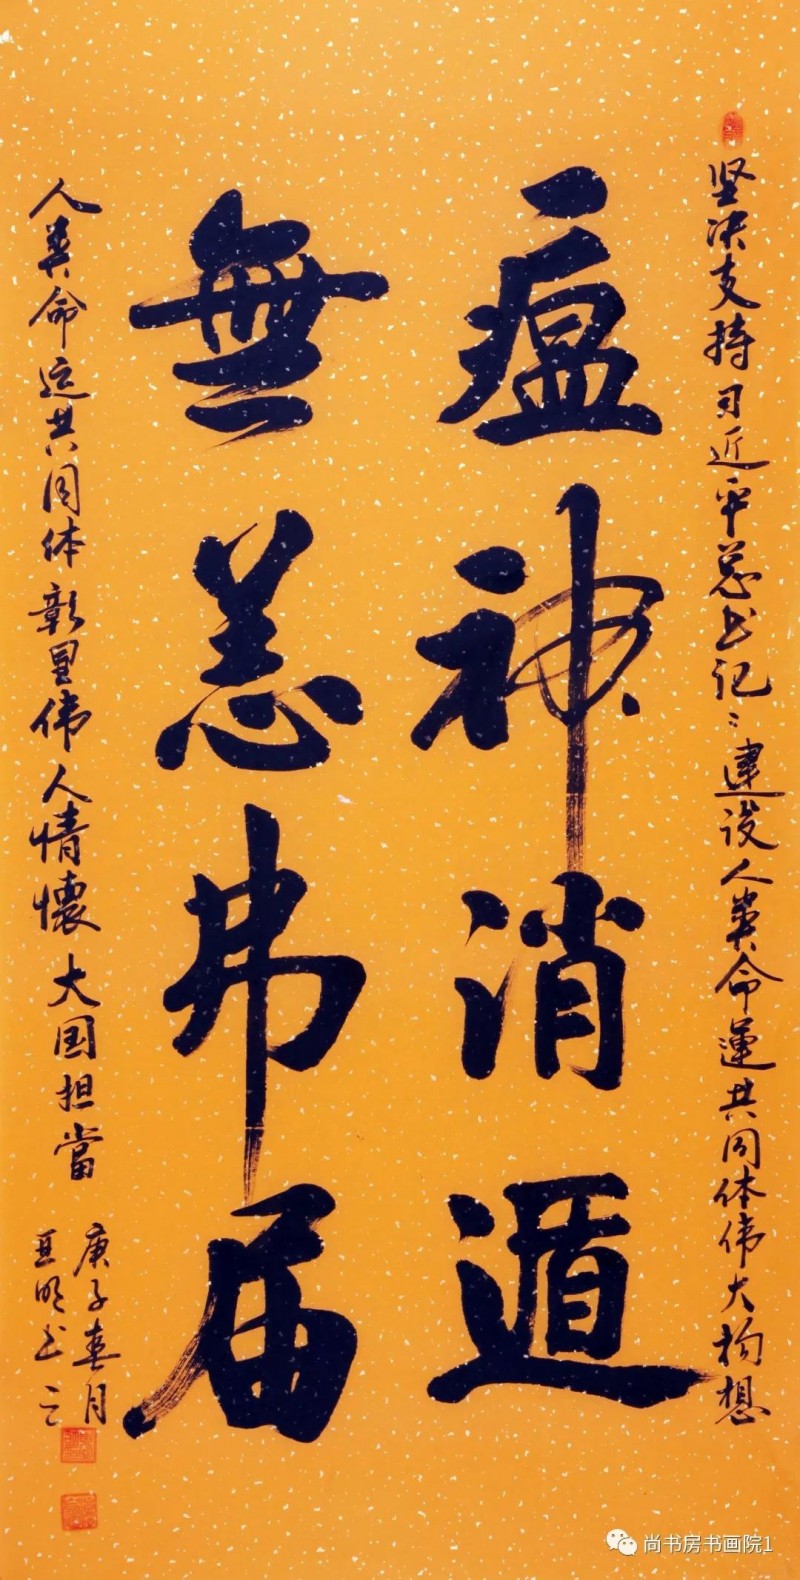 坚决支持习近平总书记：建设人类命運共同体伟大构想
瘟神消遁
無恙弗届
人类命运共同体彰显伟人情懷大国担當
庚子春月
亚明书之
尚书房书画院1